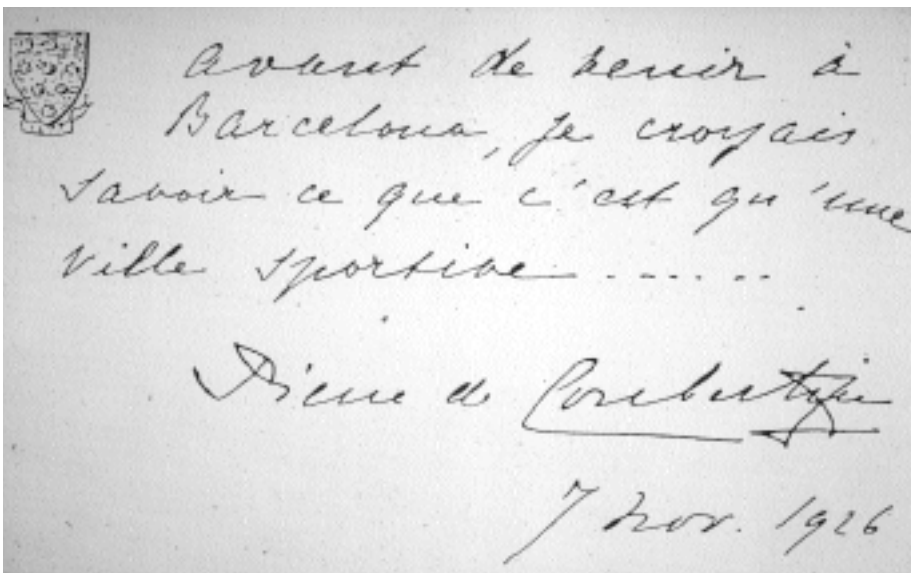 Avant de venir à
Barcelona, je croyais
savoir ce que c'est qu'une
Ville sportive ......
Pierre de Coubertin
7 nov. 1926